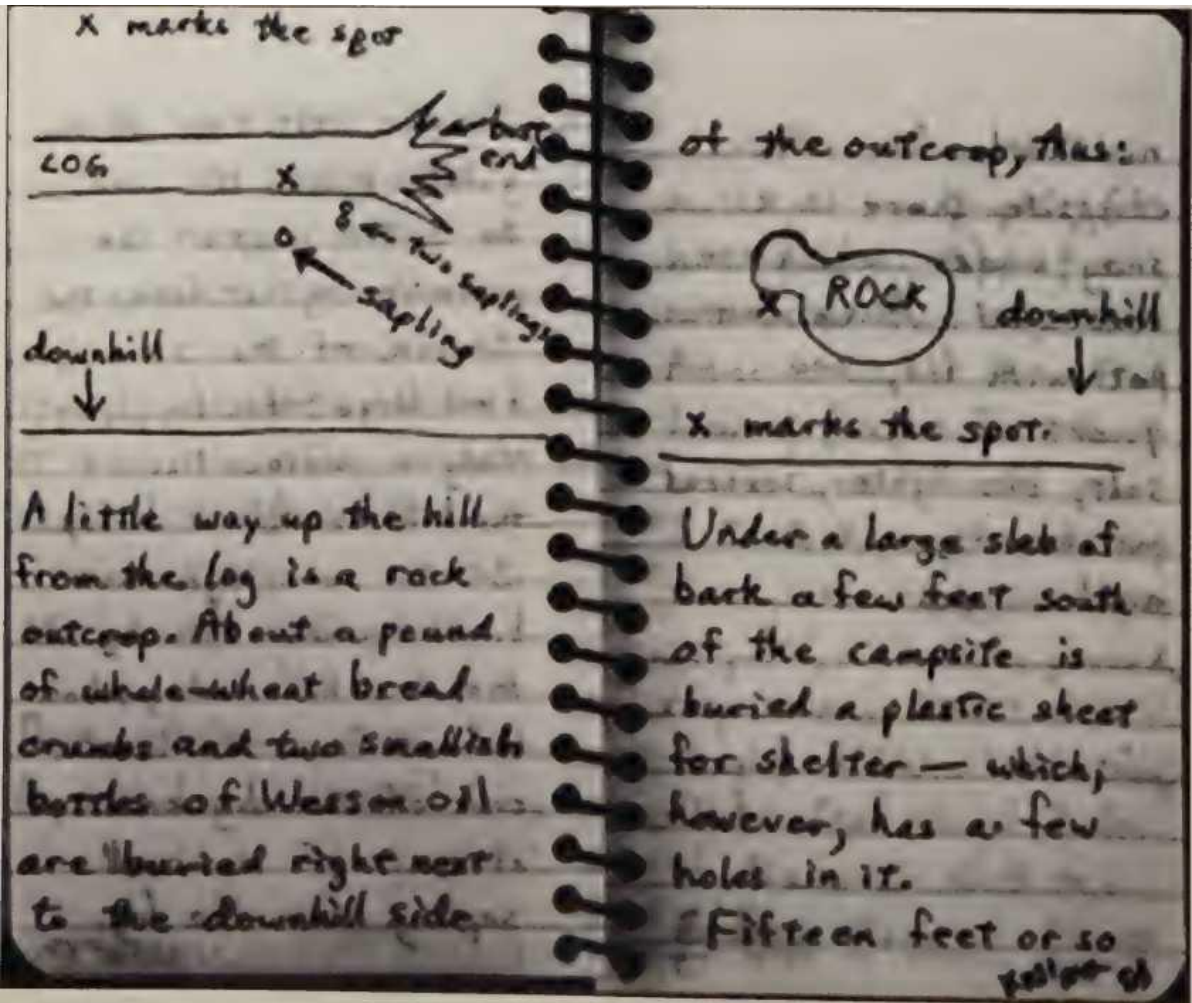 X marks the spot
LOG
X
butt
end
8 ← two saplings
o
← sapling
downhill
↓
A little way up the hill
from the log is a rock
outcrop. About a pound
of whole-wheat bread
crumbs and two smallish
bottles of Wesson oil
are buried right next
to the downhill side
of the outcrop, thus:
ROCK
X
downhill
↓
X marks the spot.
Under a large slab of
bark a few feet south
of the campsite is
buried a plastic sheet
for shelter — which,
however, has a few
holes in it.
Fifteen feet or so